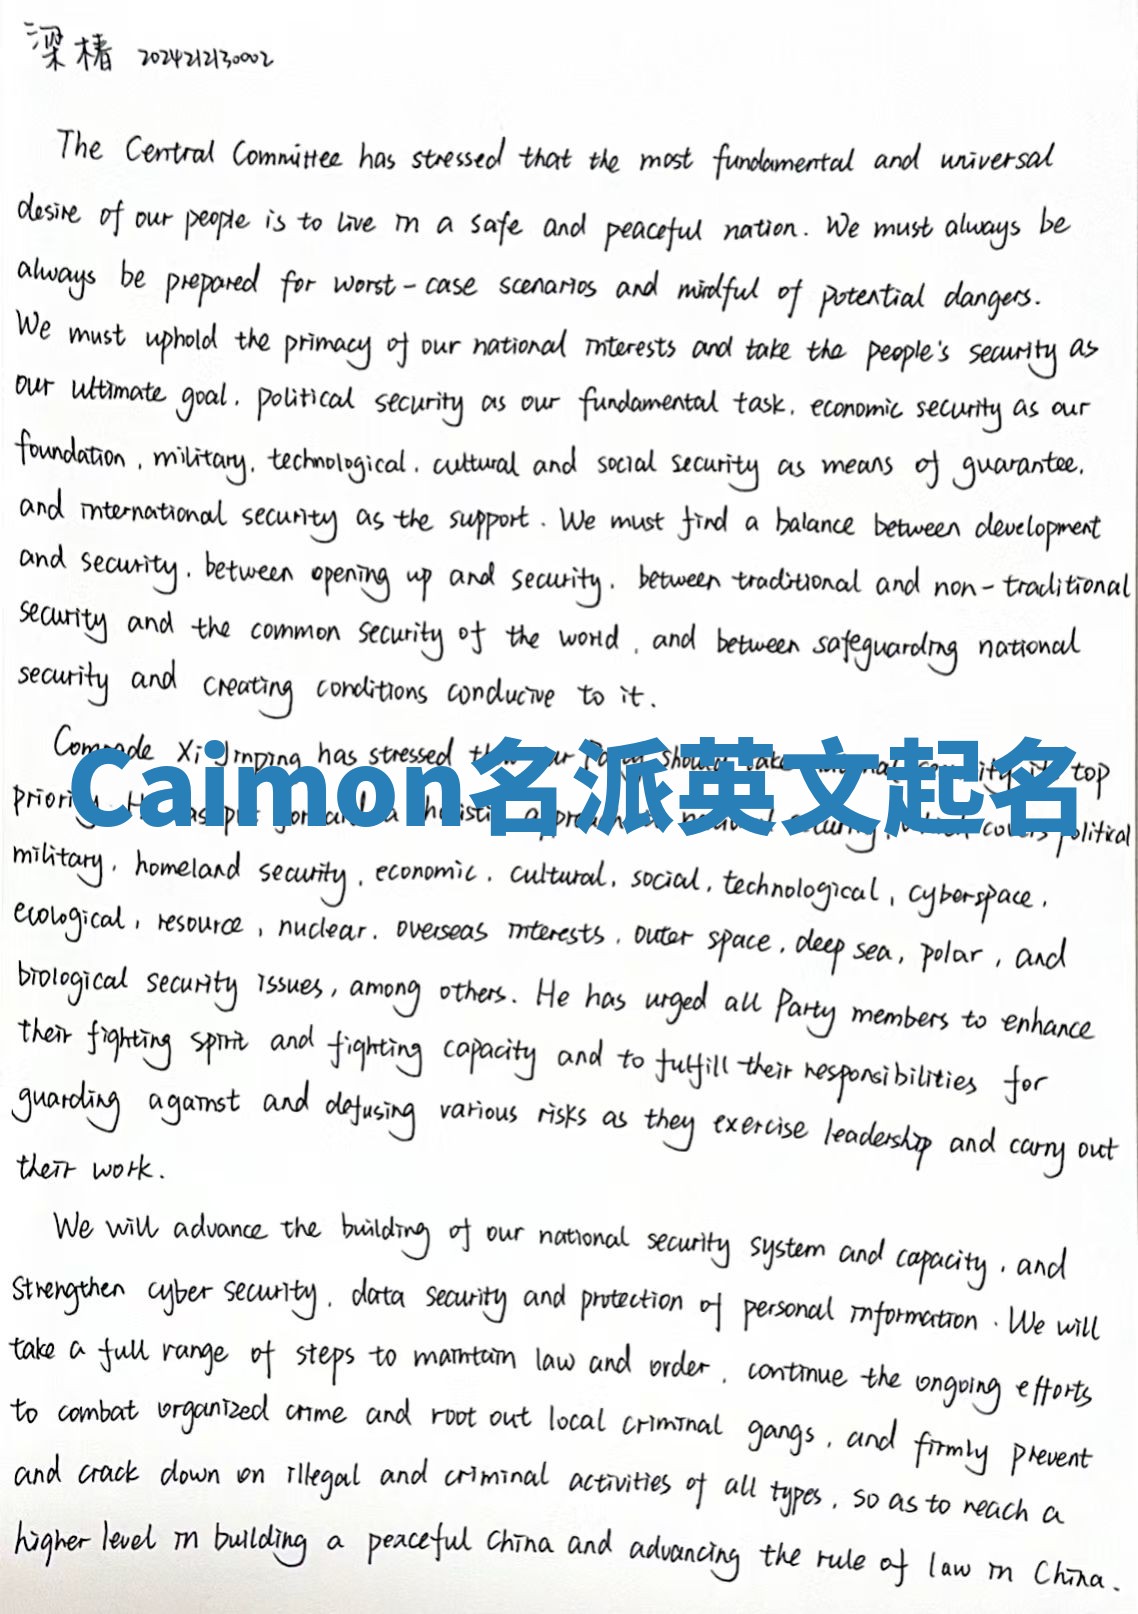 梁椿 2024212130002
The Central Committee has stressed that the most fundamental and universal
desire of our people is to live in a safe and peaceful nation. We must always be
always be prepared for worst-case scenarios and mindful of potential dangers.
We must uphold the primacy of our national interests and take the people's security as
our ultimate goal, political security as our fundamental task, economic security as our
foundation, military, technological, cultural and social security as means of guarantee,
and international security as the support. We must find a balance between development
and security, between opening up and security, between traditional and non-traditional
security and the common security of the world, and between safeguarding national
security and creating conditions conducive to it.
Comrade Xi Jinping has stressed top
Caimon名派英文起名
political
military, homeland security, economic, cultural, social, technological, cyberspace,
ecological, resource, nuclear, overseas interests, outer space, deep sea, polar, and
biological security issues, among others. He has urged all Party members to enhance
their fighting spirit and fighting capacity and to fulfill their responsibilities for
guarding against and defusing various risks as they exercise leadership and carry out
their work.
We will advance the building of our national security system and capacity, and
strengthen cyber security, data security and protection of personal information. We will
take a full range of steps to maintain law and order, continue the ongoing efforts
to combat organized crime and root out local criminal gangs, and firmly prevent
and crack down on illegal and criminal activities of all types, so as to reach a
higher level in building a peaceful China and advancing the rule of law in China.